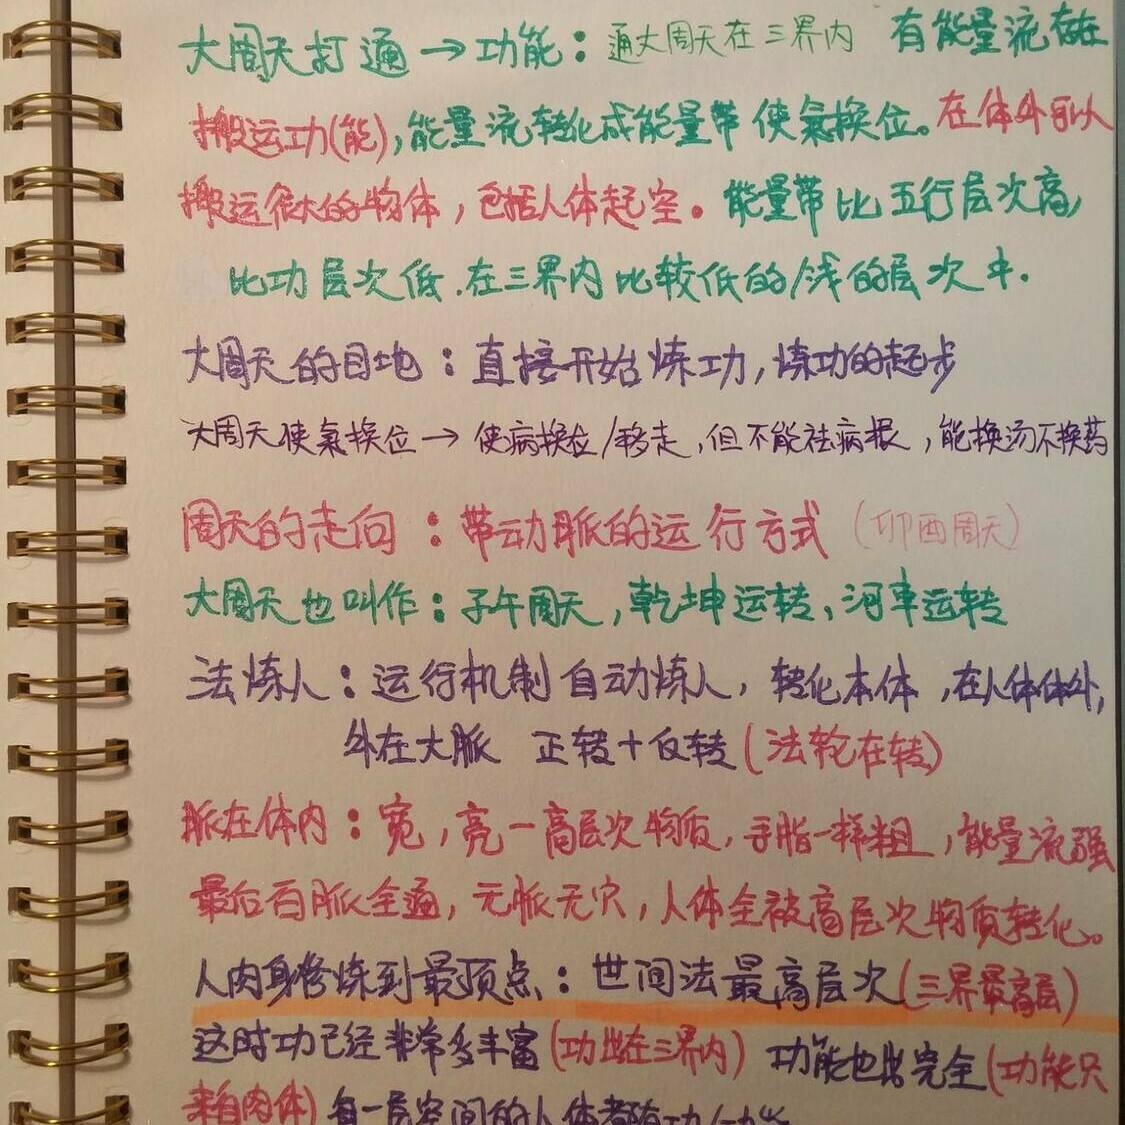 大周天打通→功能：通大周天在三界内 有能量流存在
搬运功(能),能量流转化成能量带 使氣换位。在体外可以
搬运很大的物体，包括人体起空。能量带比五行层次高,
比功层次低.在三界内比较低的/浅的层次中.
大周天的目地：直接开始炼功,炼功的起步
大周天使氣换位→使病换位/移走,但不能祛病根,能换汤不换药
周天的走向：带动脈的运行方式(卯酉周天)
大周天也叫作：子午周天,乾坤运转,河車运转
法炼人：运行机制自动炼人,转化本体,在人体体外,
外在大脈 正转+反转(法轮在转)
脈在体内：宽,亮一高层次物质,手指一样粗,能量流强
最后百脈全通,无脈无穴,人体全被高层次物质转化。
人肉身修炼到最顶点：世间法最高层次(三界最高层)
这时功已经非常多丰富(功出在三界内) 功能也出完全(功能只
来自肉体)每一层空间的人体都有功/功能